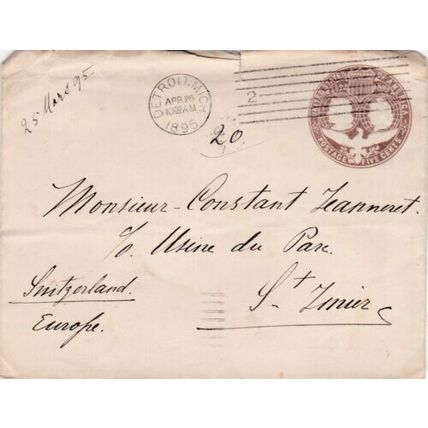 25 Mars 95-
DETROIT, MICH.
APR 26
10 AM
1895
2
20
UNITED STATES OF AMERICA
POSTAGE FIVE CENTS
Monsieur- Constant Jeanneret.
c/o. Usine du Parc.
Switzerland.
St Imier
Europe.